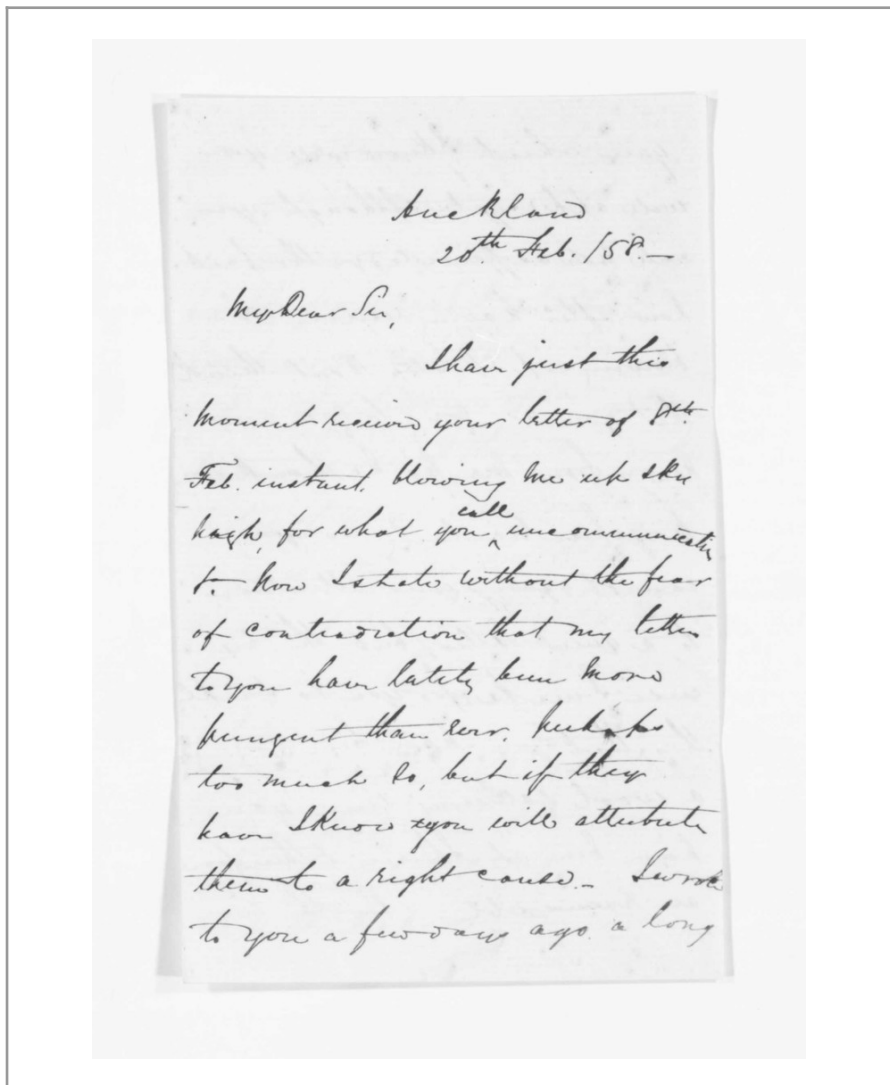 Auckland
20th. Feb. /58.—
My Dear Sir,
I have just this
moment received your letter of 8th.
Feb. instant. blowing me up sky
high, for what you call uncommunicative
&. Now I state without the fear
of contradiction that my letters
to you have lately been more
pungent than ever. perhaps
too much so, but if they
have I know you will attribute
them to a right cause_ I wrote
to you a few days ago a long